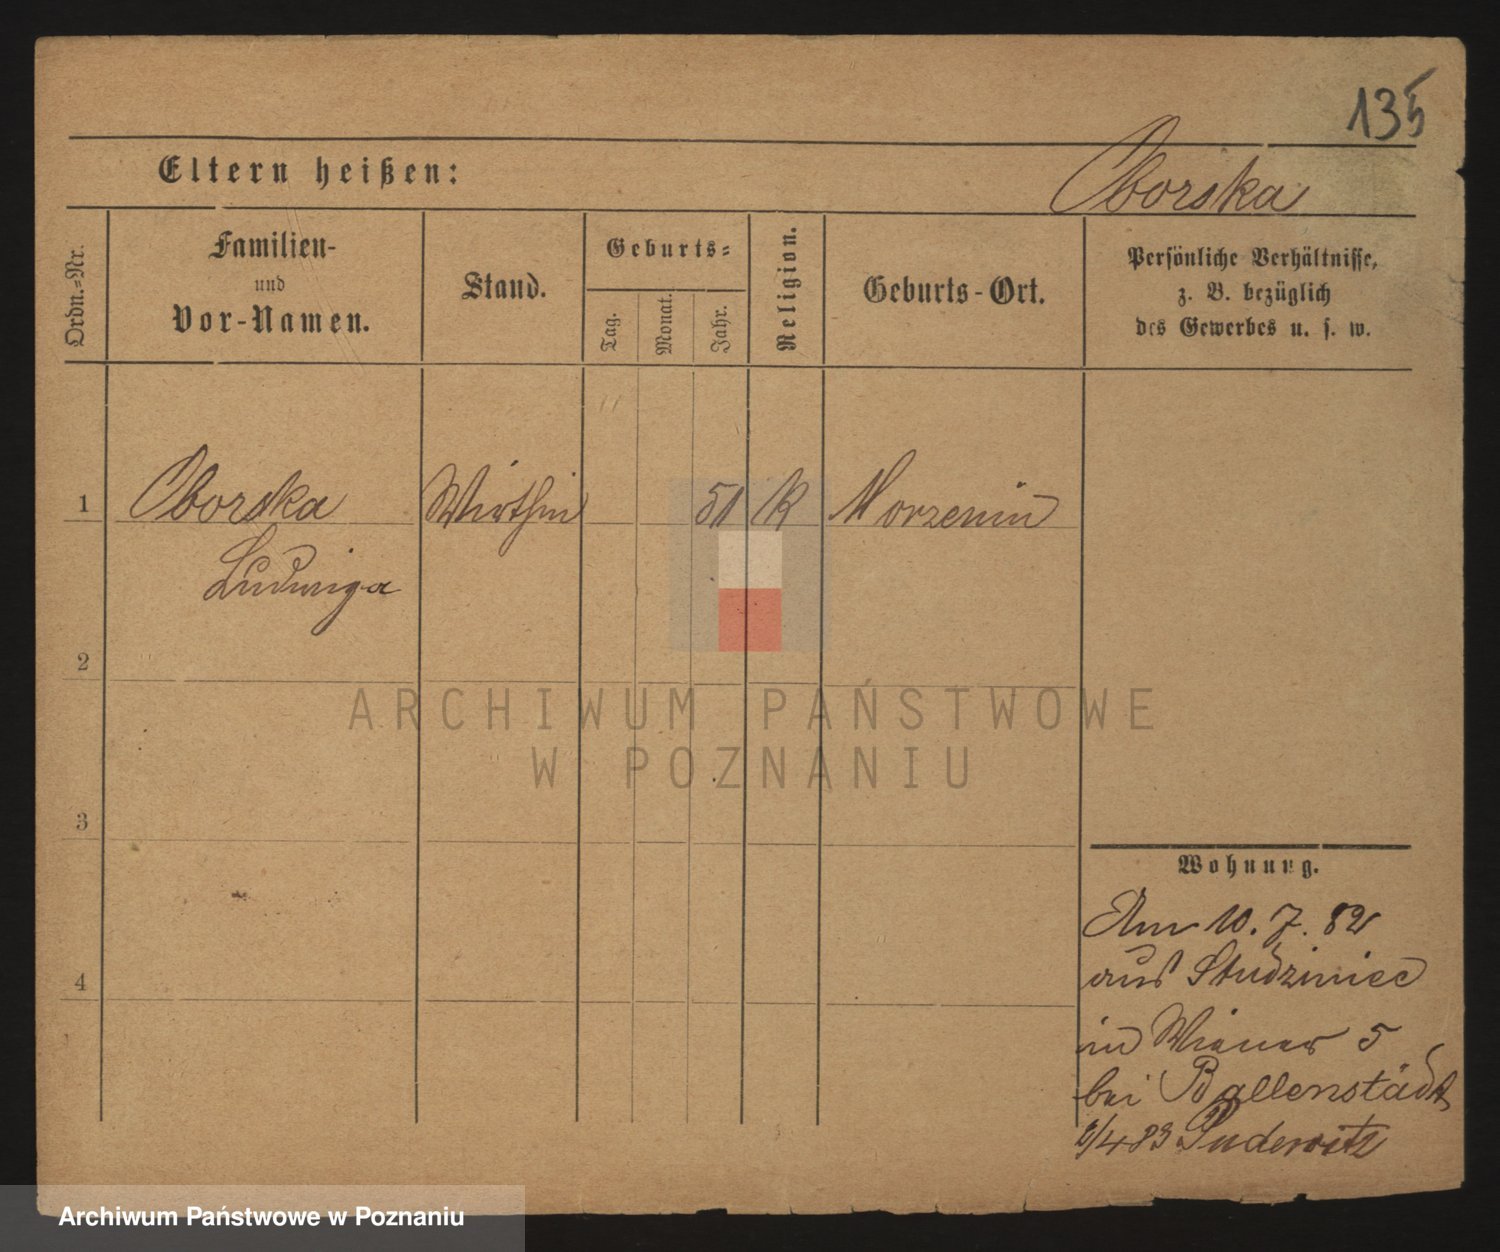 135
Eltern heißen:
Oborska
Ordn.-Nr.
Familien-
und
Vor-Namen.
Stand.
Geburts-
Tag.
Monat.
Jahr.
Religion.
Geburts-Ort.
Persönliche Verhältnisse,
z. B. bezüglich
des Gewerbes u. s. w.
1
Oborska
Wirthin
51
K
Morzenin
Ludwiga
2
ARCHIWUM PAŃSTWOWE
W POZNANIU
3
Wohnung.
Am 10. 7. 82
aus Studziniec
in Wiener 5
bei Ballenstädt
4/4 83 Pudewitz
4
Archiwum Państwowe w Poznaniu